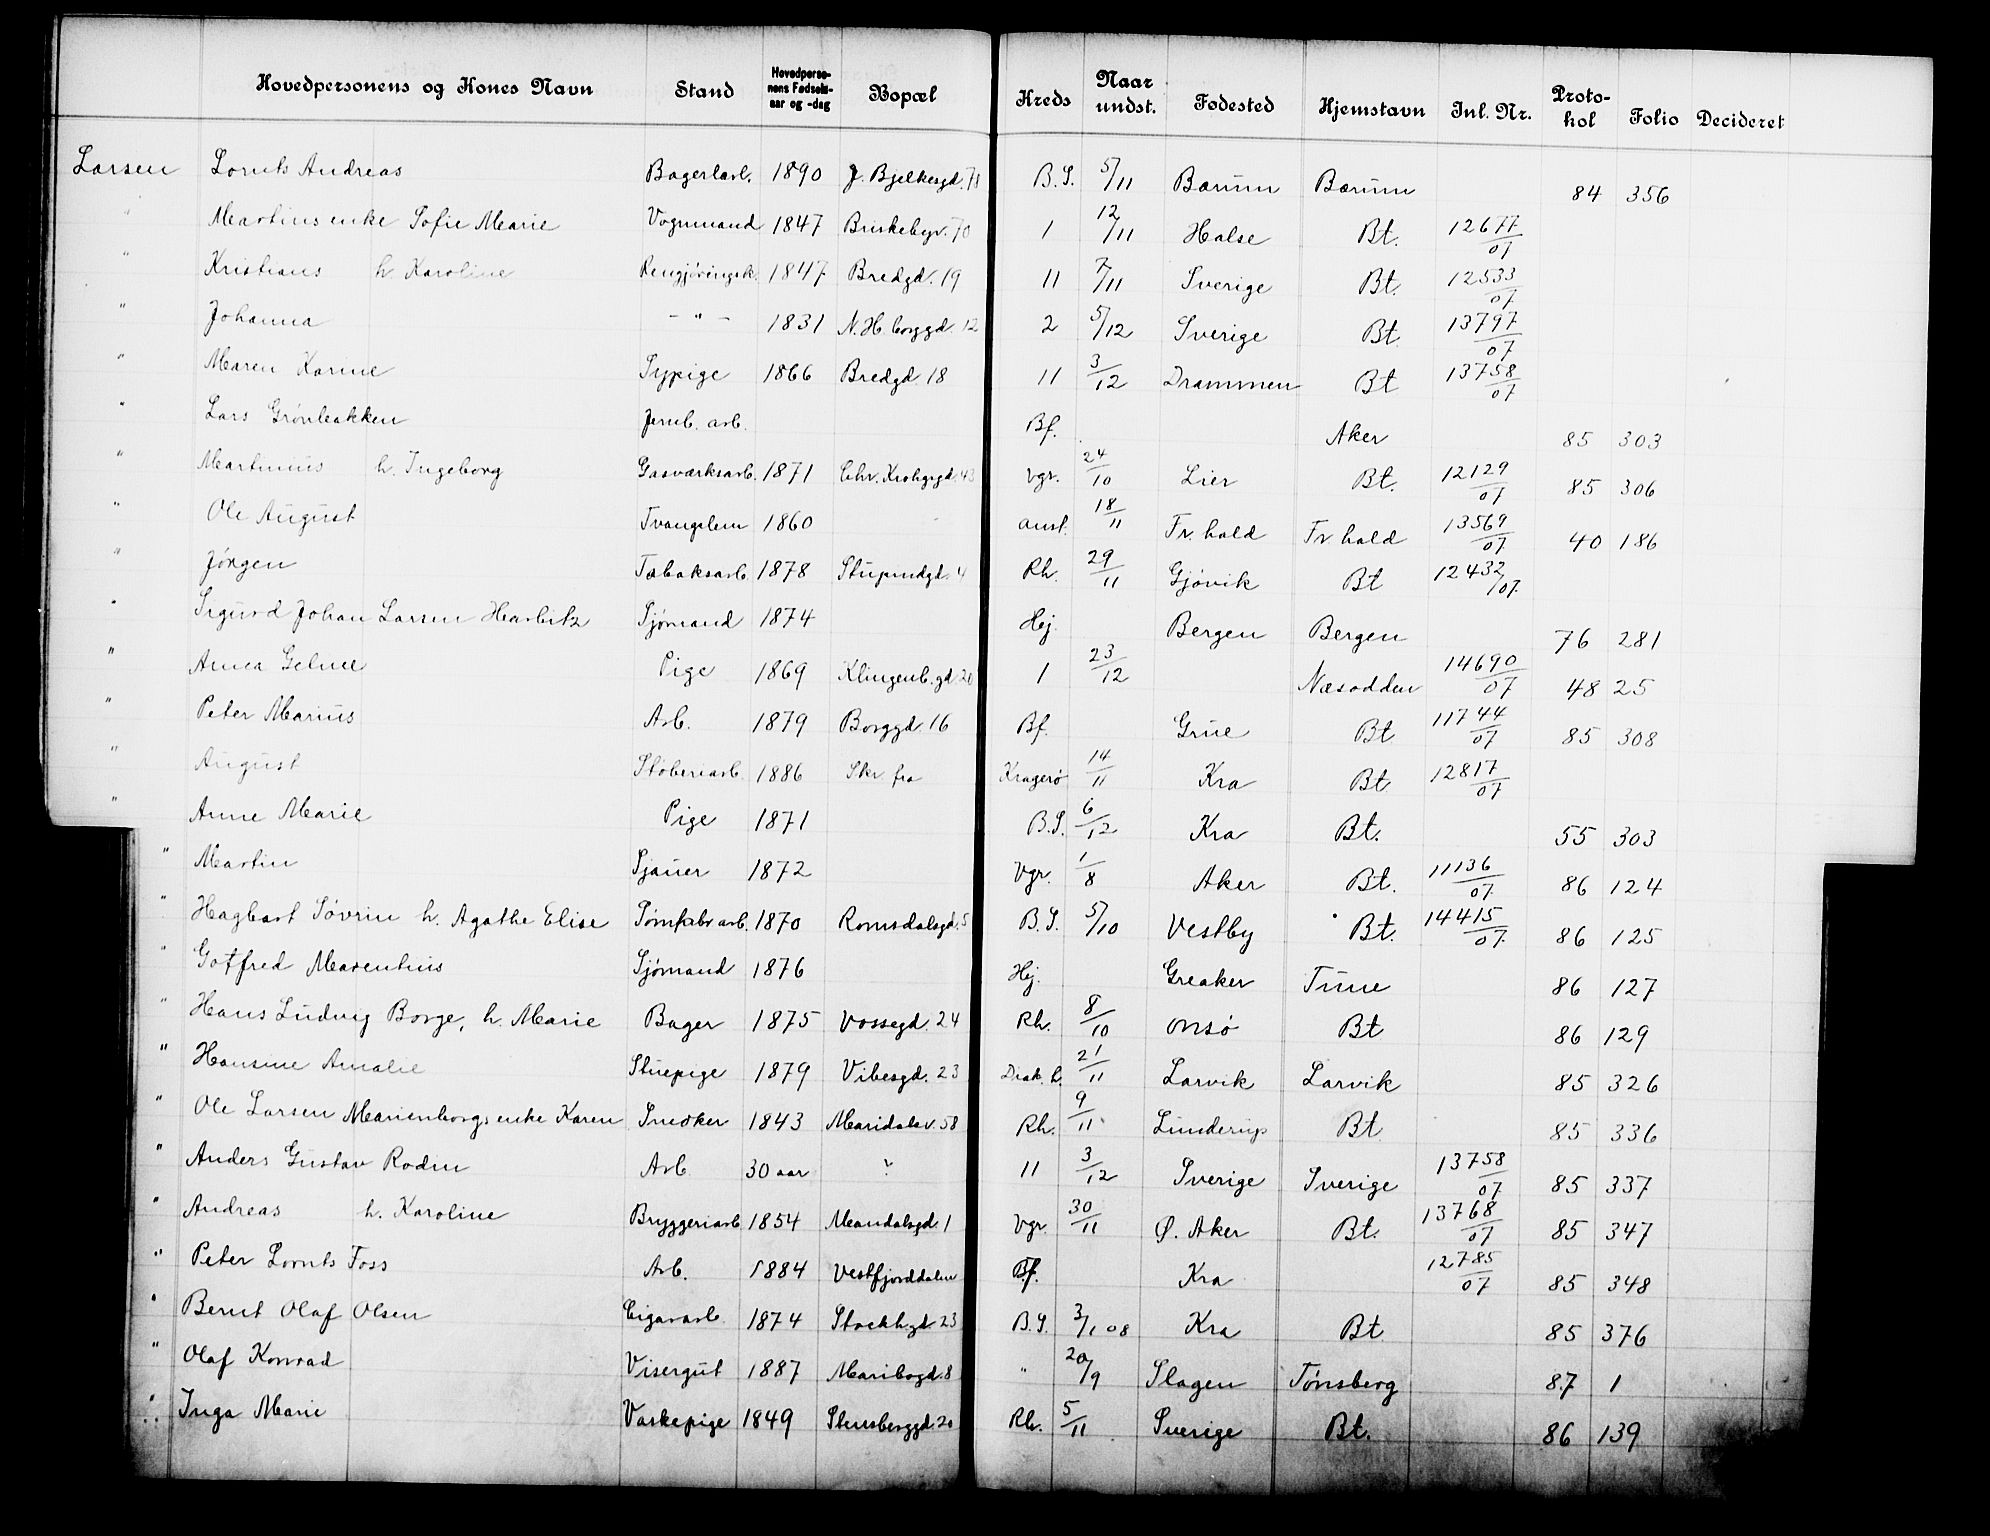 Hovedpersonens og Kones Navn Stand Hovedperso-nens Fødsels-aar og -dag Bopæl Kreds Naar undst. Fødested Hjemstavn Inl. Nr. Proto-kol Folio Decideret
Larsen Lornts Andreas Bagerlærl. 1890 J. Bjelkesgd. 71 B.S. 5/11 Bærum Bærum 84 356
" Martins enke Sofie Marie Vognmand 1847 Briskebyv. 70 1 12/11 Halse Bt. 12677/07
" Kristians h. Karoline Rengjøringsk. 1847 Bredgd. 19 11 7/11 Sverige Bt. 12533/07
" Johanna - " - 1831 N. H. borggd. 12 2 5/12 Sverige Bt. 13797/07
" Maren Karine Sypige 1866 Bredgd 18 11 3/12 Drammen Bt 13758/07
" Lars Grønbakken Jernb. arb. Bf. Aker 85 303
" Martinius h. Ingeborg Gasværksarb. 1871 Chr. Krohgsgd. 43 Vgr. 24/10 Lier Bt. 12129/07 85 306
" Ole August Tvangslem 1860 anst. 18/11 Fr. hald Fr hald 13569/07 40 186
" Jørgen Tobaksarb. 1878 Stupindgd. 4 Rh. 29/11 Gjøvik Bt 12432/07
" Sigurd Johan Larsen Harbitz Sjømand 1874 Hej. Bergen Bergen 76 281
" Anna Geline Pige 1869 Klingenb. gd. 20 1 23/12 Næsodden 14690/07 48 25
" Peter Marius Arb. 1879 Borggd. 16 Bf. Grue Bt. 11744/07 85 308
" August Støberiarb. 1886 Skr fra Kragerø 14/11 Kra Bt 12817/07
" Anne Marie Pige 1871 B.S. 6/12 Kra Bt. 55 303
" Martin Sjauer 1872 Vgr. 1/8 Aker Bt. 11136/07 86 124
" Hagbart Søvrin h. Agathe Elise Sømfabr arb. 1870 Romsdalsgd. 5 B.S. 5/10 Vestby Bt. 14415/07 86 125
" Gotfred Marenthius Sjømand 1876 Hej. Greaker Tune 86 127
" Hans Ludvig Borge, h. Marie Bager 1875 Vossegd. 24 Rh. 8/10 Onsø Bt 86 129
" Hansine Amalie Stuepige 1879 Vibesgd. 23 Diak. h. 21/11 Larvik Larvik 85 326
" Ole Larsen Marienborgs enke Karen Snedker 1843 Maridalsv. 58 Rh. 9/11 Linderup Bt 85 336
" Anders Gustav Rodin Arb. 30 aar ? 11 3/12 Sverige Sverige 13758/07 85 337
" Andreas h. Karoline Bryggeriarb. 1854 Mandalsgd. 1 Vgr. 30/11 Ø. Aker Bt. 13768/07 85 347
" Peter Lornts Foss Arb. 1884 Vestfjorddalen Bf. Kra 12785/07 85 348
" Bernt Olaf Olsen Cigararb. 1874 Stockhgd. 23 B.S. 3/1 08 Kra Bt. 85 376
" Olaf Konrad Visergut 1887 Maribogd. 8 " 20/9 Slagen Tønsberg 87 1
" Inga Marie Vaskepige 1849 Stensberggd. 20 Rh. 5/11 Sverige Bt. 86 139